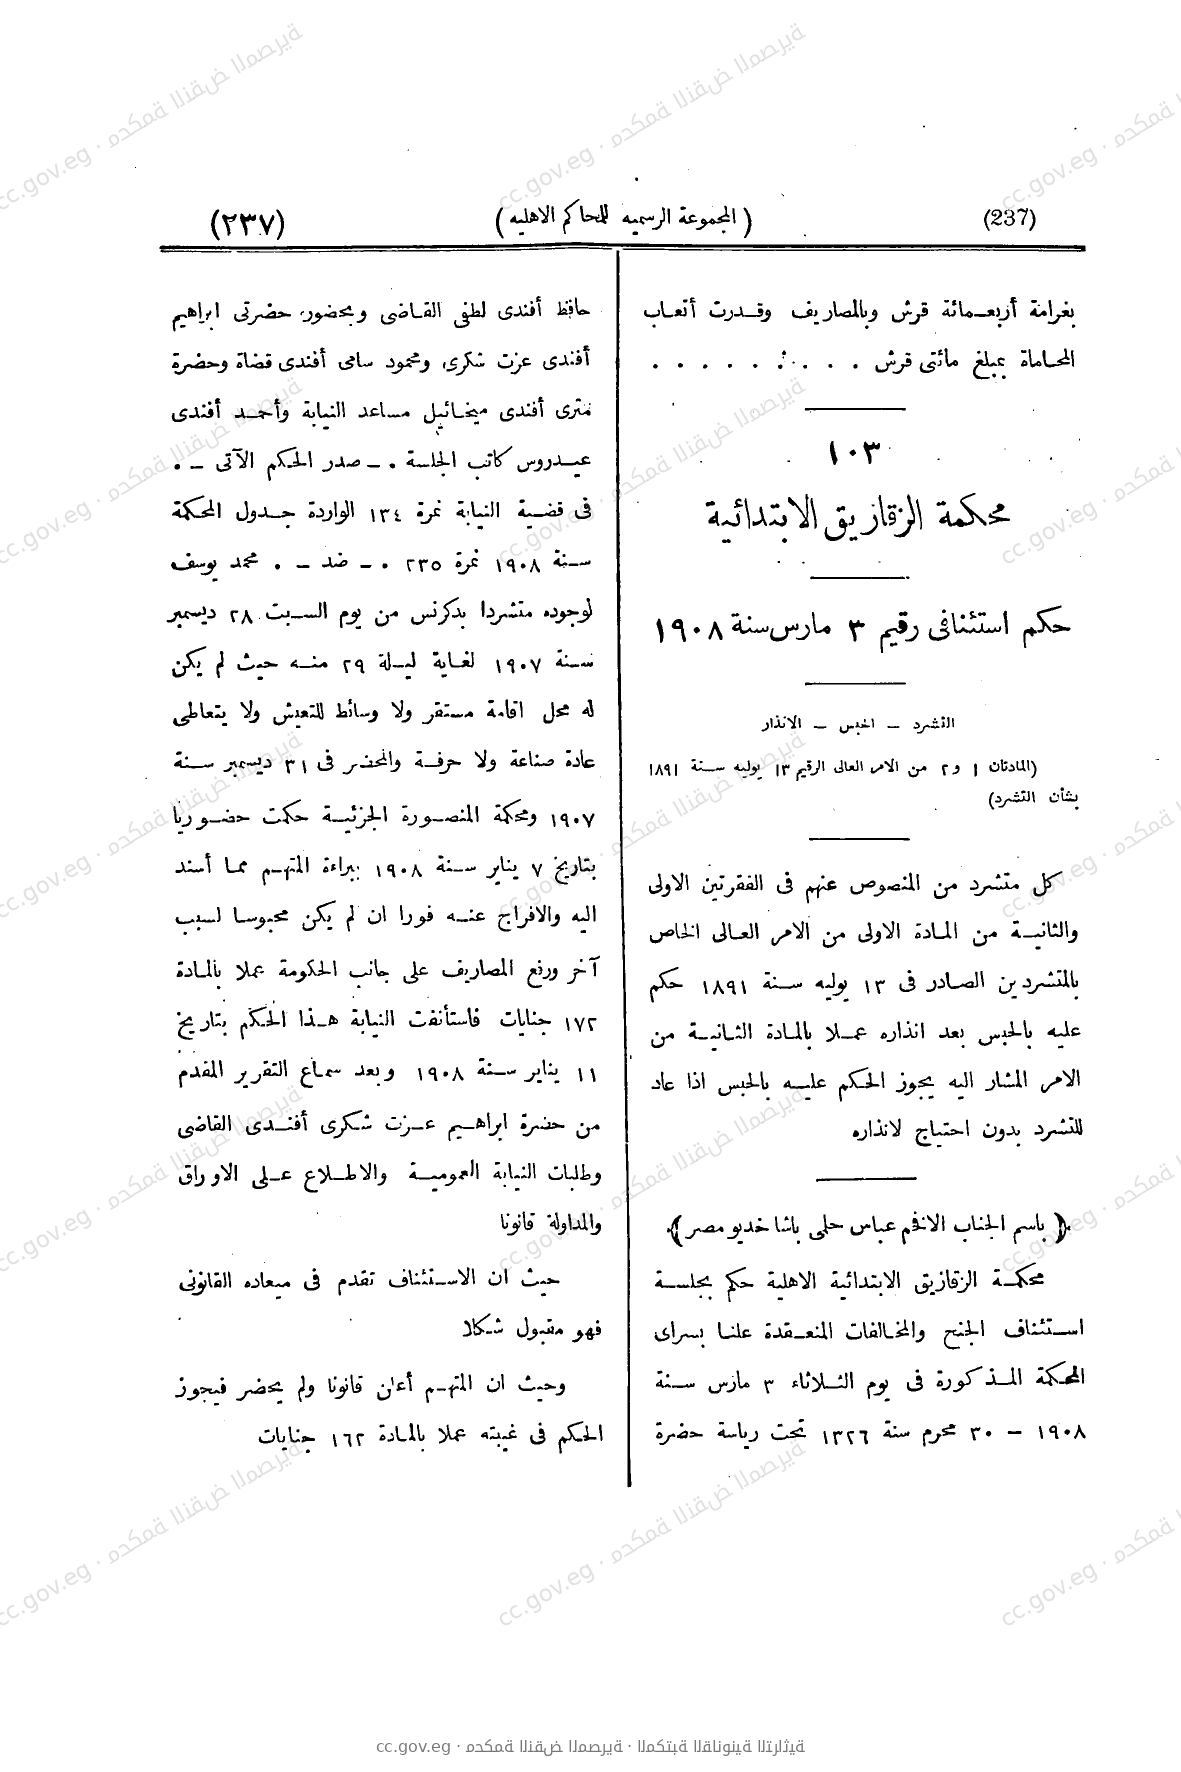 (237)
( المجموعة الرسميه للمحاكم الاهليه )
(٢٣٧)
بغرامة أربعمائة قرش وبالمصاريف وقدرت أتعاب
المحاماة بمبلغ مائتى قرش . . . . . . . . .
١٠٣
محكمة الزقازيق الابتدائية
حكم استئنافى رقيم ٣ مارس سنة ١٩٠٨
التشرد – الحبس – الانذار
(المادتان ١ و٢ من الامر العالى الرقيم ١٣ يوليه سنة ١٨٩١
بشأن التشرد)
كل متشرد من المنصوص عنهم فى الفقرتين الاولى
والثانية من المادة الاولى من الامر العالى الخاص
بالمتشردين الصادر فى ١٣ يوليه سنة ١٨٩١ حكم
عليه بالحبس بعد انذاره عملا بالمادة الثانية من
الامر المشار اليه يجوز الحكم عليه بالحبس اذا عاد
للتشرد بدون احتياج لانذاره
﴿ باسم الجناب الافخم عباس حلمى باشا خديو مصر ﴾
محكمة الزقازيق الابتدائية الاهلية حكم بجلسة
استئناف الجنح والمخالفات المنعقدة علنا بسراى
المحكمة المذكورة فى يوم الثلاثاء ٣ مارس سنة
١٩٠٨ – ٣٠ محرم سنة ١٣٢٦ تحت رياسة حضرة
حافظ أفندى لطفى القاضى وبحضور حضرتى ابراهيم
أفندى عزت شكرى ومحمود سامى أفندى قضاة وحضرة
مترى أفندى ميخائيل مساعد النيابة وأحمد أفندى
عيدروس كاتب الجلسة . – صدر الحكم الآتى – .
فى قضية النيابة نمرة ١٣٤ الواردة جدول المحكمة
سنة ١٩٠٨ نمرة ٢٣٥ . – ضد – . محمد يوسف
لوجوده متشردا بدكرنس من يوم السبت ٢٨ ديسمبر
سنة ١٩٠٧ لغاية ليلة ٢٩ منه حيث لم يكن
له محل اقامة مستقر ولا وسائط للتعيش ولا يتعاطى
عادة صناعة ولا حرفة والمحضر فى ٣١ ديسمبر سنة
١٩٠٧ ومحكمة المنصورة الجزئية حكمت حضوريا
بتاريخ ٧ يناير سنة ١٩٠٨ ببراءة المتهم مما أسند
اليه والافراج عنه فورا ان لم يكن محبوسا لسبب
آخر ورفع المصاريف على جانب الحكومة عملا بالمادة
١٧٢ جنايات فاستأنفت النيابة هذا الحكم بتاريخ
١١ يناير سنة ١٩٠٨ وبعد سماع التقرير المقدم
من حضرة ابراهيم عزت شكرى أفندى القاضى
وطلبات النيابة العمومية والاطلاع على الاوراق
والمداولة قانونا
حيث ان الاستئناف تقدم فى ميعاده القانونى
فهو مقبول شكلا
وحيث ان المتهم أعلن قانونا ولم يحضر فيجوز
الحكم فى غيبته عملا بالمادة ١٦٢ جنايات
cc.gov.eg · محكمة النقض المصرية · المكتبة القانونية التراثية